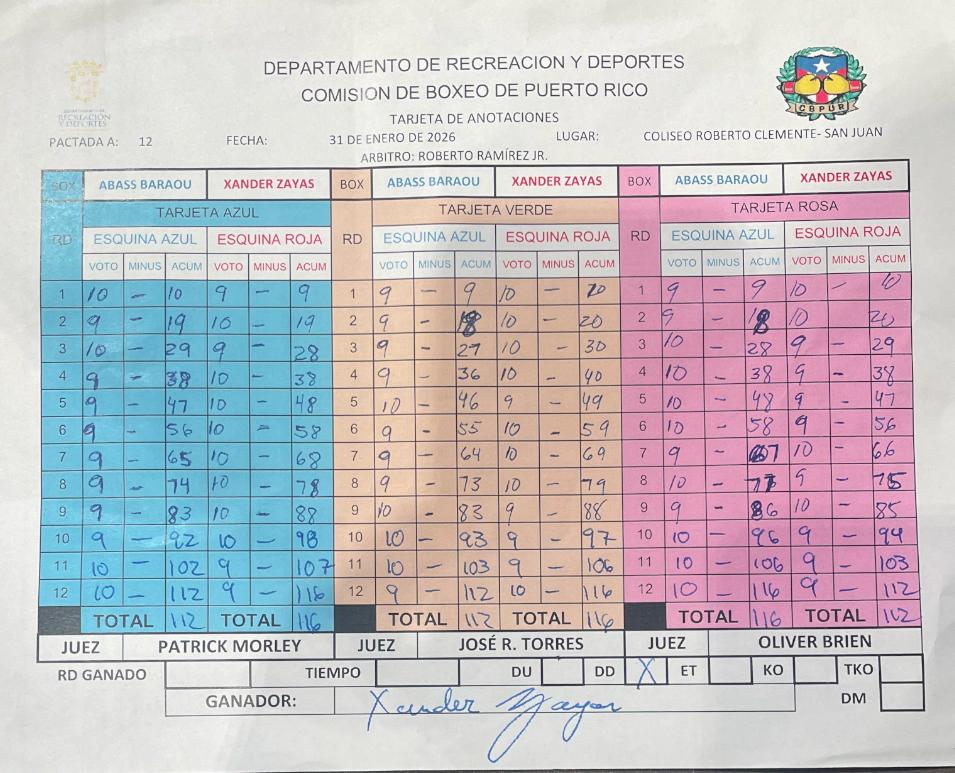 DEPARTAMENTO DE RECREACION Y DEPORTES
COMISION DE BOXEO DE PUERTO RICO
RECREACIÓN Y DEPORTES
CBPUR
TARJETA DE ANOTACIONES
PACTADA A: 12 FECHA: 31 DE ENERO DE 2026 LUGAR: COLISEO ROBERTO CLEMENTE- SAN JUAN
ARBITRO: ROBERTO RAMÍREZ JR.
BOX ABASS BARAOU XANDER ZAYAS BOX ABASS BARAOU XANDER ZAYAS BOX ABASS BARAOU XANDER ZAYAS
TARJETA AZUL TARJETA VERDE TARJETA ROSA
RD ESQUINA AZUL ESQUINA ROJA RD ESQUINA AZUL ESQUINA ROJA RD ESQUINA AZUL ESQUINA ROJA
VOTO MINUS ACUM VOTO MINUS ACUM VOTO MINUS ACUM VOTO MINUS ACUM VOTO MINUS ACUM VOTO MINUS ACUM
1 10 – 10 9 – 9 1 9 – 9 10 – 10 1 9 – 9 10 – 10
2 9 – 19 10 – 19 2 9 – 18 10 – 20 2 9 – 18 10 20
3 10 – 29 9 – 28 3 9 – 27 10 – 30 3 10 – 28 9 – 29
4 9 – 38 10 – 38 4 9 – 36 10 – 40 4 10 – 38 9 – 38
5 9 – 47 10 – 48 5 10 – 46 9 – 49 5 10 – 48 9 – 47
6 9 – 56 10 – 58 6 9 – 55 10 – 59 6 10 – 58 9 – 56
7 9 – 65 10 – 68 7 9 – 64 10 – 69 7 9 – 67 10 – 66
8 9 – 74 10 – 78 8 9 – 73 10 – 79 8 10 – 77 9 – 75
9 9 – 83 10 – 88 9 10 – 83 9 – 88 9 9 – 86 10 – 85
10 9 – 92 10 – 98 10 10 – 93 9 – 97 10 10 – 96 9 – 94
11 10 – 102 9 – 107 11 10 – 103 9 – 106 11 10 – 106 9 – 103
12 10 – 112 9 – 116 12 9 – 112 10 – 116 12 10 – 116 9 – 112
TOTAL 112 TOTAL 116 TOTAL 112 TOTAL 116 TOTAL 116 TOTAL 112
JUEZ PATRICK MORLEY JUEZ JOSÉ R. TORRES JUEZ OLIVER BRIEN
RD GANADO TIEMPO DU DD X ET KO TKO
GANADOR: Xander Zayas DM